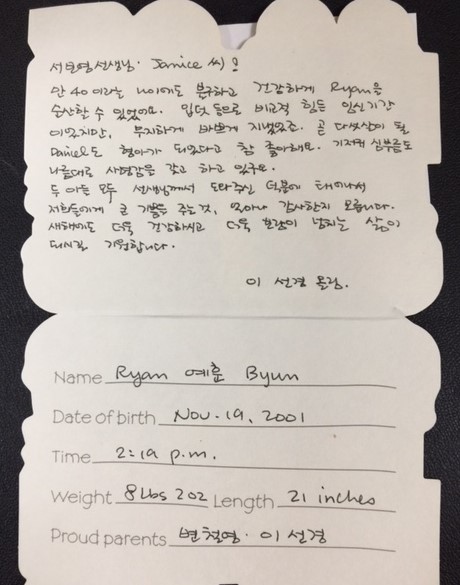 서변영선생님. Janice 씨!
만 40 이라는 나이에도 불구하고 건강하게 Ryan을
순산할 수 있었어요. 입덧 등으로 비교적 힘든 임신기간
이었지만, 무지하게 바쁘게 지냈었죠. 곧 다섯살이 될
Daniel도 형아가 되었다고 참 좋아해요. 기저귀 심부름도
나름대로 사명감을 갖고 하고 있구요.
두 아들 모두 선생님께서 도와주신 덕분에 태어나서
저희들에게 큰 기쁨을 주는 것, 얼마나 감사한지 모릅니다.
새해에도 더욱 건강하시고 더욱 보람이 넘치는 삶이
되시길 기원합니다.
이 선경 올림.
Name Ryan 예훈 Byun
Date of birth Nov. 19, 2001
Time 2:19 p.m.
Weight 8 lbs 2 oz Length 21 inches
Proud parents 변철영· 이 선경